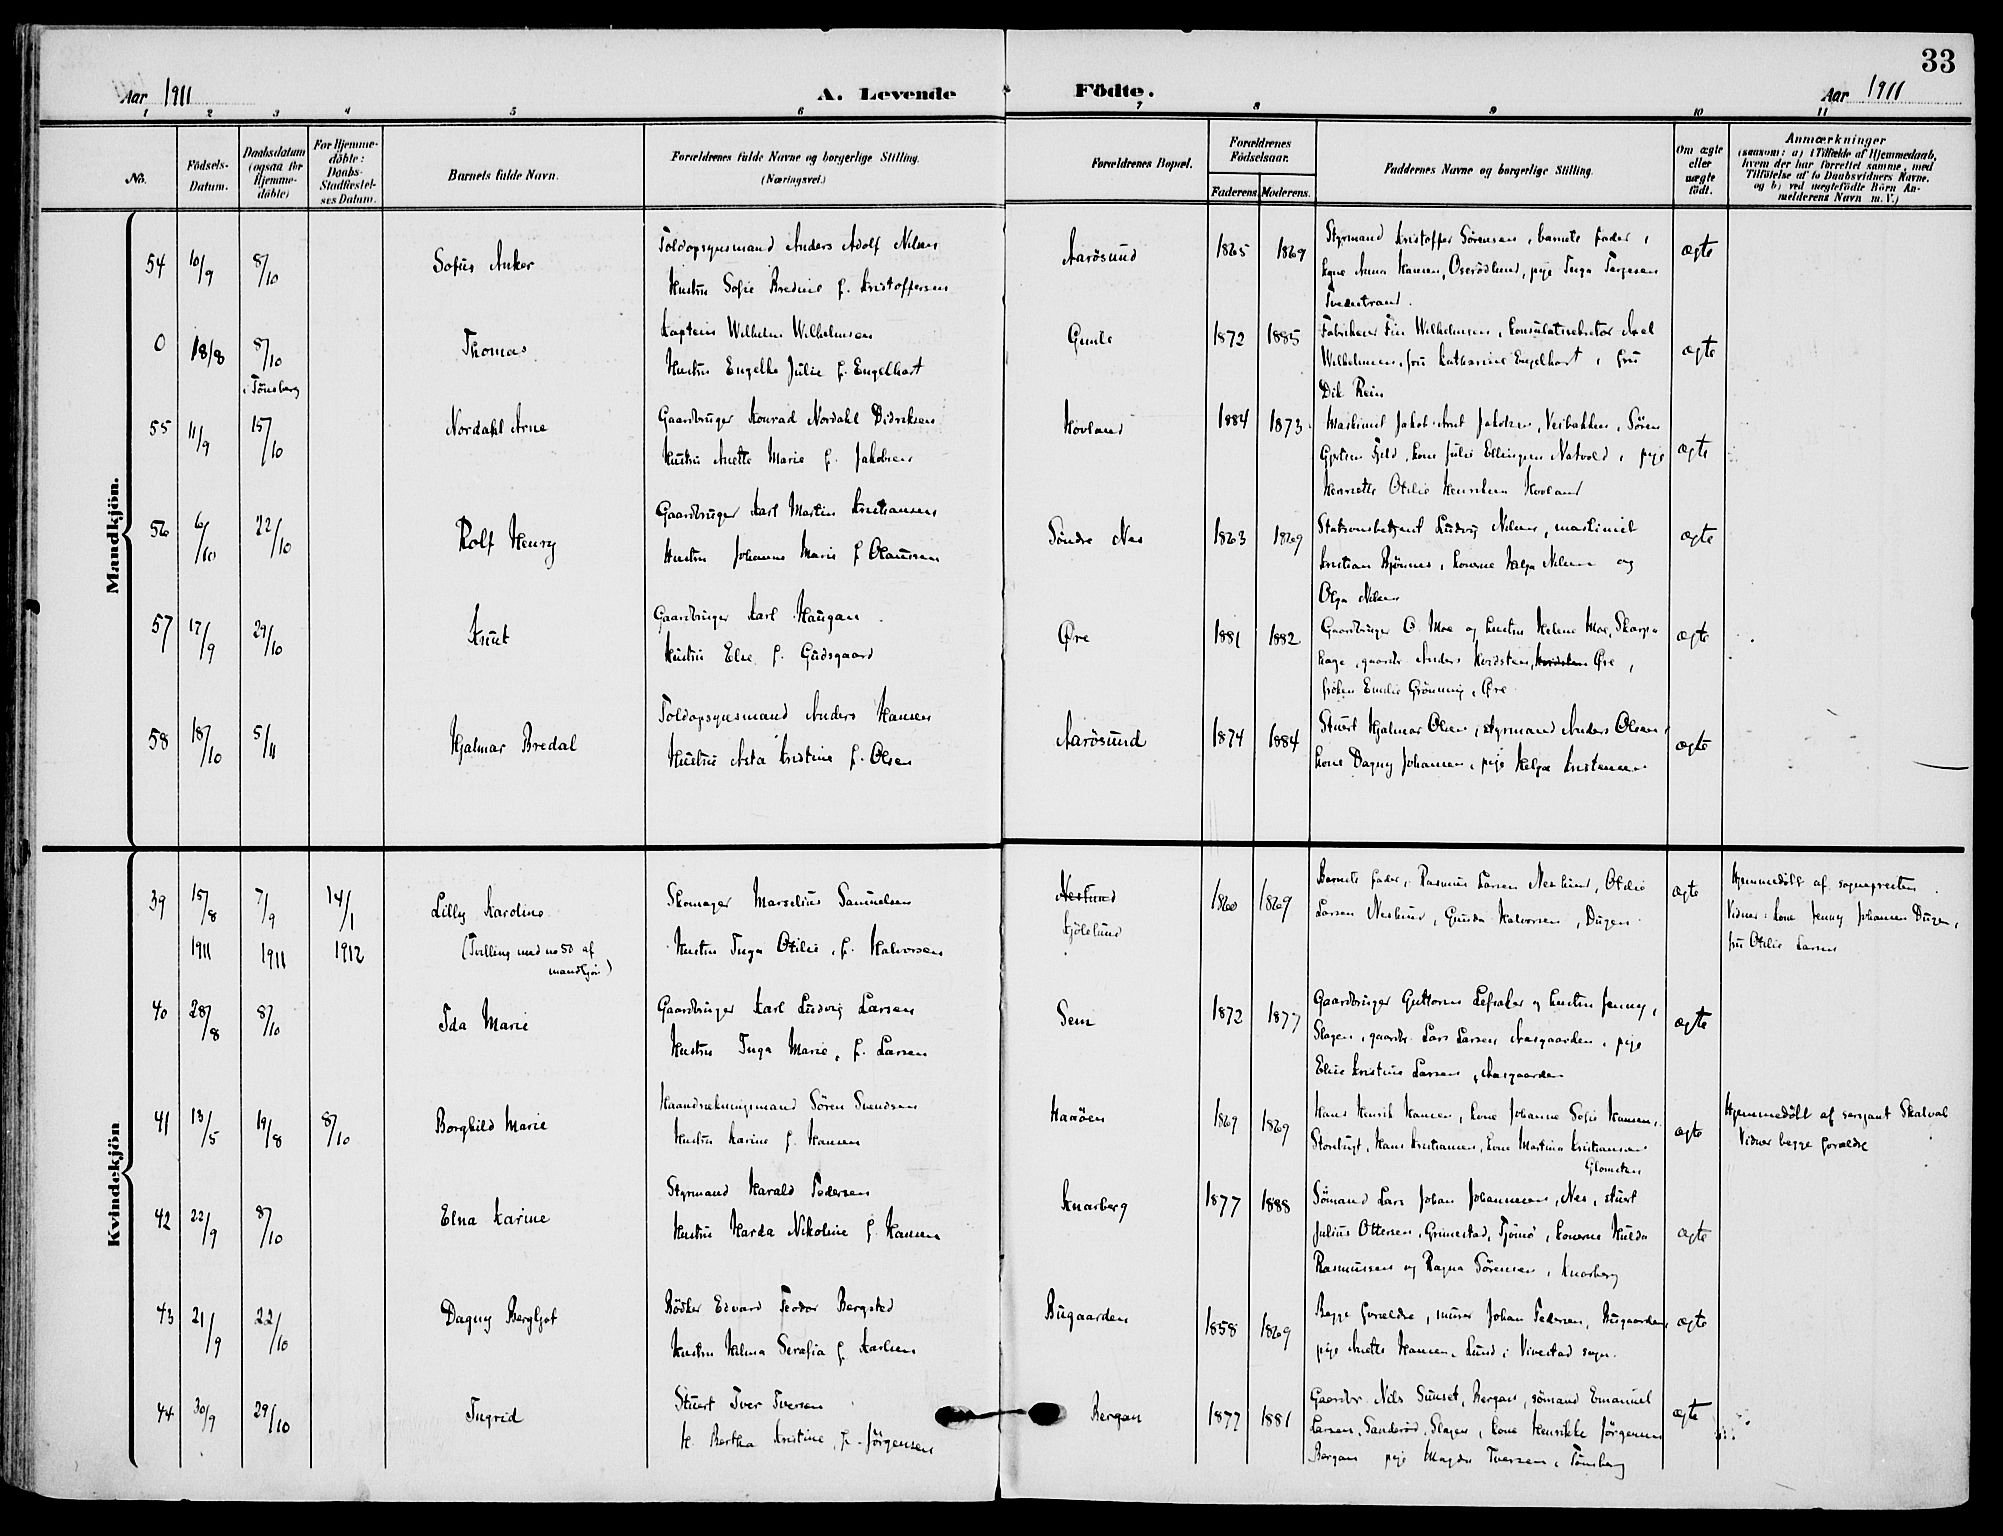 33
Aar 1911 A. Levende Födte. Aar 1911
1 2 3 4 5 6 7 8 9 10 11
No.
Födsels-Datum.
Daabsdatum (ogsaa for Hjemme-döbte)
For Hjemme-döbte: Daabs-Stadfæstel-ses Datum.
Barnets fulde Navn.
Forældrenes fulde Navne og borgerlige Stilling.
(Næringsvei.)
Forældrenes Bopæl.
Forældrenes Födselsaar.
Faderens. Moderens.
Faddernes Navne og borgerlige Stilling.
Om ægte eller uægte födt.
Anmærkninger
(saasom: a) i Tilfælde af Hjemmedaab,
hvem der har forrettet samme, med
Tilföielse af to Daabsvidners Navne.
og b) ved uægtefödte Börn An-
melderens Navn m. V.)
Mandkjön.
54 10/9 8/10 Sofus Anker
Toldopsynsmand Anders Adolf Nilsen
Hustru Sofie Bredine f. Kristoffersen
Aarösund 1865 1869
Styrmand Kristoffer Sörensen, barnets fader,
Anna Hansen, pige Inga Terjesen
Tvedestrand.
ægte
0 18/8 8/10 i Tönsberg Thomas
Kaptein Wilhelm Wilhelmsen
Hustru Engelke Julie f. Engelhart
Gunle 1872 1885
Fabrikeier Fin Wilhelmsen, konsulatsekretær Axel
Wilhelmsen, fru Katharine Engelhart, fru
Dik Rein
ægte
55 11/9 15/10 Nordahl Arne
Gaardbruger Konrad Nordahl Didriksen
Hustru Anette Marie f. Jakobsen
Hovland 1884 1873
Maskinist Jakob Arnt Jakobsen, Veibakken, Sören
kone Julie Ellingsen Natvold, pige
Henriette Otilie Henriksen Hovland
ægte
56 6/10 22/10 Rolf Henry
Gaardbruger Karl Martin Kristiansen
Hustru Johanne Marie f. Olaussen
Söndre Nes 1863 1869
Stationsbetjent Ludvig Nilsen, maskinist
Kristian Bjönnes, konerne Helga Nilsen og
Olga Nilsen
ægte
57 17/9 29/10 Knut
Gaardbruger Karl Haugan
Hustru Else f. Gudsgaard
Øre 1881 1882
Gaardbruger O. Moe og hustru Helene Moe, Skarpe
hage, gaardbr Anders Hvidsten, Hvidsten Øre,
fröken Emilie Grönning, Øre
ægte
58 18/10 5/11 Hjalmar Bredal
Toldopsynsmand Anders Hansen
Hustru Asta Kristine f. Olsen
Aarösund 1874 1884
Stuert Hjalmar Olsen, styrmand Anders Olsen,
kone Dagny Johansen, pige Helga Kristensen
ægte
Kvindekjön
39 15/8 1911 7/9 1911 14/1 1912 Lilly Karoline
(Tvilling med no 50 af
mandkjön)
Skomager Marselius Samuelsen
Hustru Inga Otilie, f. Halvorsen
Neslund
Kjölelund
1860 1869
Barnets fader, Rasmus Larsen Neslund, Otilie
Larsen Neslund, Gunda Halvorsen, Dugen
ægte
Hjemmedöbt af sognepresten.
Vidner: kone Jenny Johansen Dugen,
fru Otilie Larsen
40 28/8 8/10 Ida Marie
Gaardbruger Karl Ludvig Larsen
Hustru Inga Marie, f. Larsen
Sem 1872 1877
Gaardbruger Guttorm Lefsaker og hustru Jenny,
Slagen, gaardbr. Lars Larsen Aasgaarden, pige
Elise Kristine Larsen, Aasgaarden
ægte
41 13/5 19/8 8/10 Borghild Marie
Haandrækningsmand Sören Svendsen
Hustru Karine f. Hansen
Haaöen 1869 1869
Hans Henrik Hansen, kone Johanne Sofie Hansen,
Hans Kristiansen, kone Martine Kristiansen
ægte
Hjemmedöbt af sersjant Skatval
Vidner begge forældre
42 22/9 8/10 Elna Karine
Styrmand Harald Pedersen
Hustru Harda Nikoline f. Hansen
Knarberg 1877 1888
Sömand Lars Johan Johannesen, Nes, stuert
Julius Ottersen, Grimestad, Tjömö, konerne Hulda
Rasmussen og Ragna Sörensen, Knarberg
ægte
43 21/9 22/10 Dagny Bergljot
Bödker Edvard Teodor Bergsted
Hustru Hilma Serafia f. Karlsen
Bugaarden 1858 1869
Begge forældre, murer Johan Pedersen, Bugaarden,
pige Anette Hansen, Lund i Vivestad sogn.
ægte
44 30/9 29/10 Ingrid
Stuert Iver Iversen
H. Bertha Kristine, f. Jörgensen
Bergan 1877 1881
Gaardbr. Nils Sunset, Bergan, sömand Emanuel
Larsen, Sanderöd, Slagen, kone Henrikke Jörgensen
Bergan pige Magda Iversen, Tönsberg
ægte